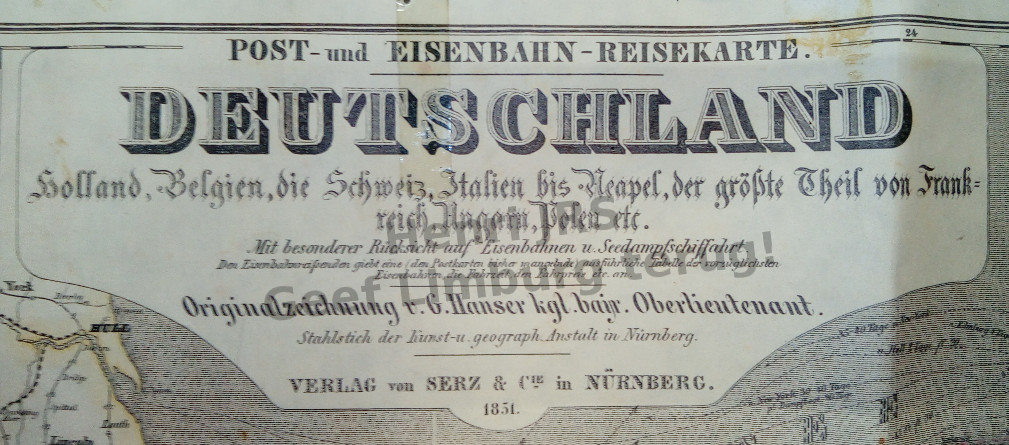 24
POST- und EISENBAHN-REISEKARTE.
DEUTSCHLAND
Holland, Belgien, die Schweiz, Italien bis Neapel, der größte Theil von Frank=
reich, Ungarn, Polen etc.
Mit besonderer Rücksicht auf Eisenbahnen u. Seedampfschiffahrt
Den Eisenbahnreisenden giebt eine (den Postkarten bisher mangelnde) ausführliche Tabelle der vorzüglichsten
Eisenbahnen, die Fahrzeit, den Fahrpreis etc. an.
Henri IPS
Geef Limburg terug!
Originalzeichnung v. G. Hanser kgl. bayr. Oberlieutenant.
Stahlstich der Kunst- u. geograph. Anstalt in Nürnberg.
VERLAG von SERZ & CIE in NÜRNBERG.
1851.
York
HULL
Louth
Lincoln